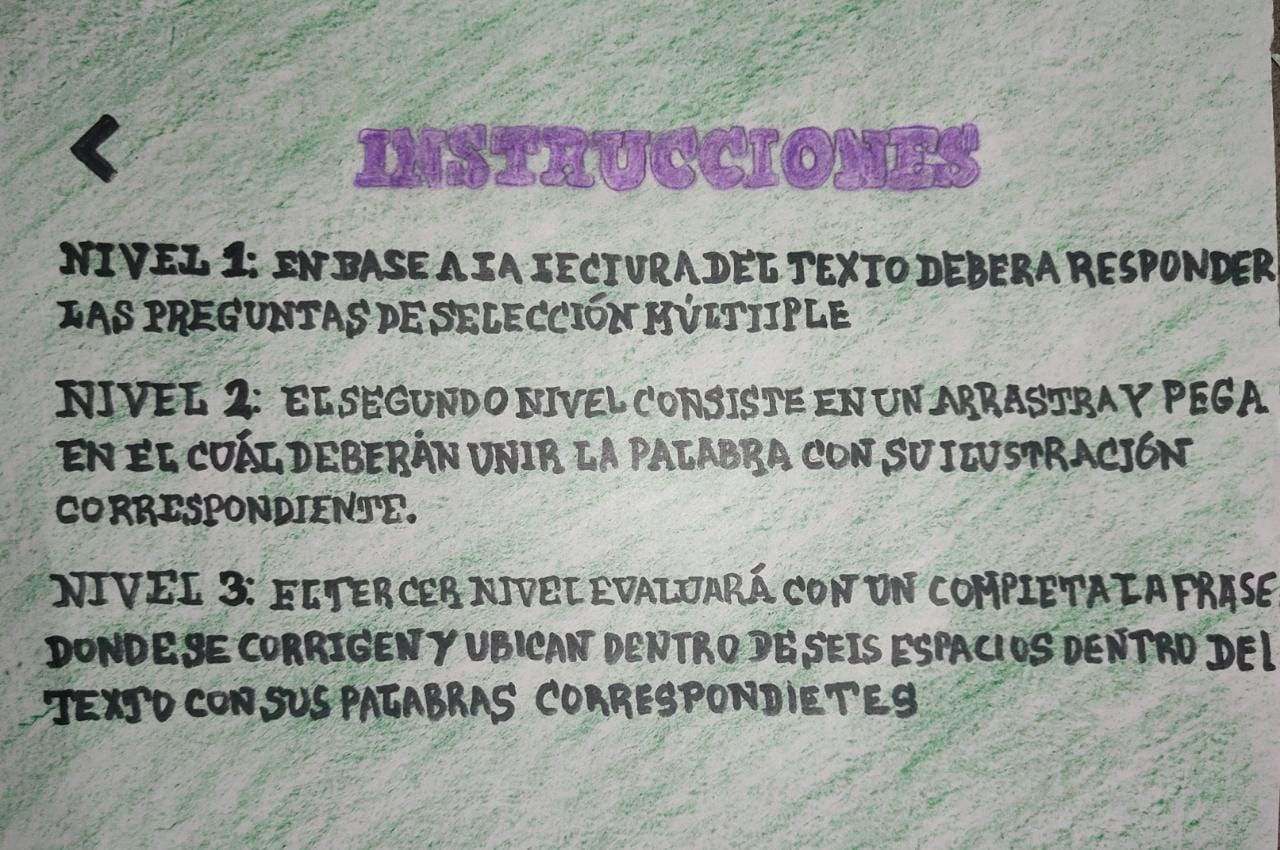 <
INSTRUCCIONES
NIVEL 1: EN BASE A LA LECTURA DEL TEXTO DEBERA RESPONDER
LAS PREGUNTAS DE SELECCIÓN MÚLTIIPLE
NIVEL 2: EL SEGUNDO NIVEL CONSISTE EN UN ARRASTRA Y PEGA
EN EL CUÁL DEBERÁN UNIR LA PALABRA CON SU ILUSTRACIÓN
CORRESPONDIENTE.
NIVEL 3: EL TERCER NIVEL EVALUARÁ CON UN COMPLETA LA FRASE
DONDE SE CORRIGEN Y UBICAN DENTRO DE SEIS ESPACIOS DENTRO DEL
TEXTO CON SUS PALABRAS CORRESPONDIETES